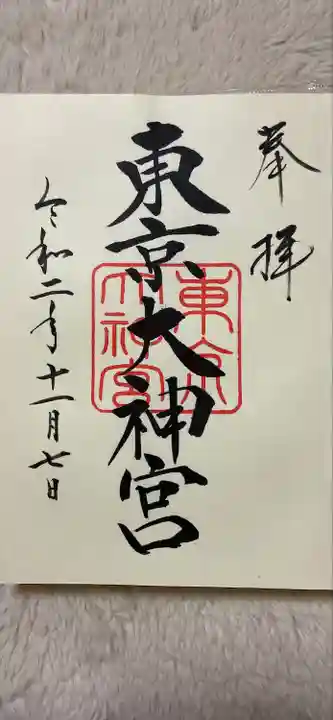 奉拝
東京大神宮
東京大神宮
令和二年十一月七日